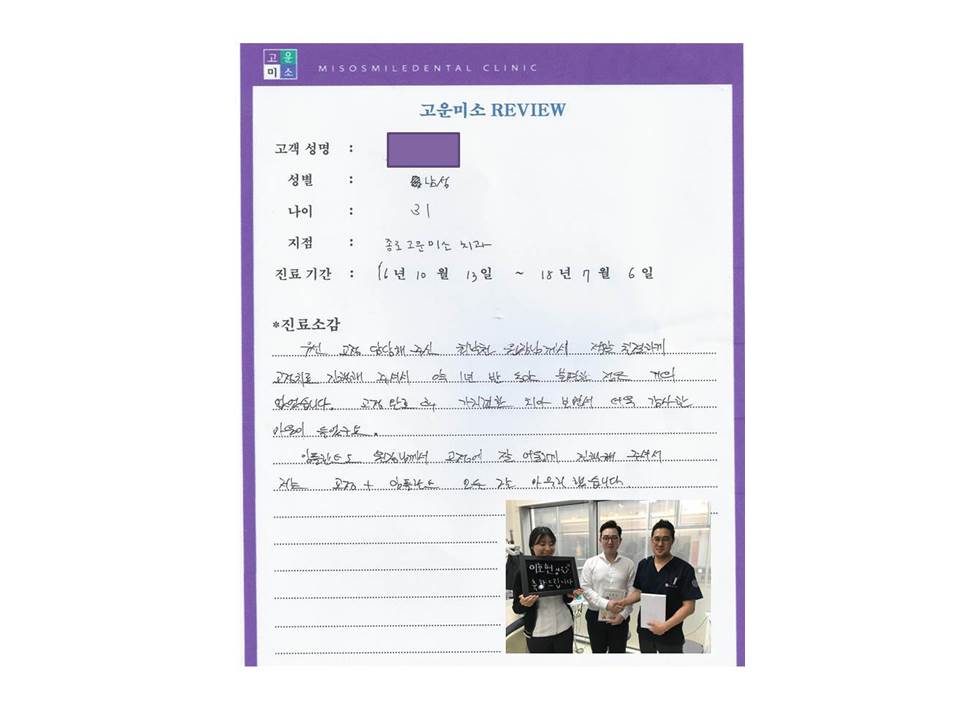 고운
미소
MISOSMILEDENTAL CLINIC
고운미소 REVIEW
고객 성명 :
성별 : 남성
나이 : 31
지점 : 종로고운미소 치과
진료 기간 : 16년 10월 13일 ~ 18년 7월 6일
*진료소감
우선 교정 담당해 주신 원장님께서 정말 친절하게
교정치료 진행해 주셔서 약 1년 반 동안 불편한 점은 거의
없었습니다. 교정 완료 후 가지런한 치아 보면서 더욱 감사한
마음이 들었구요.
임플란트도 원장님께서 교정에 잘 어울리게 진행해 주셔서
저는 교정 + 임플란트 모두 잘 마무리 했습니다.
축하드립니다